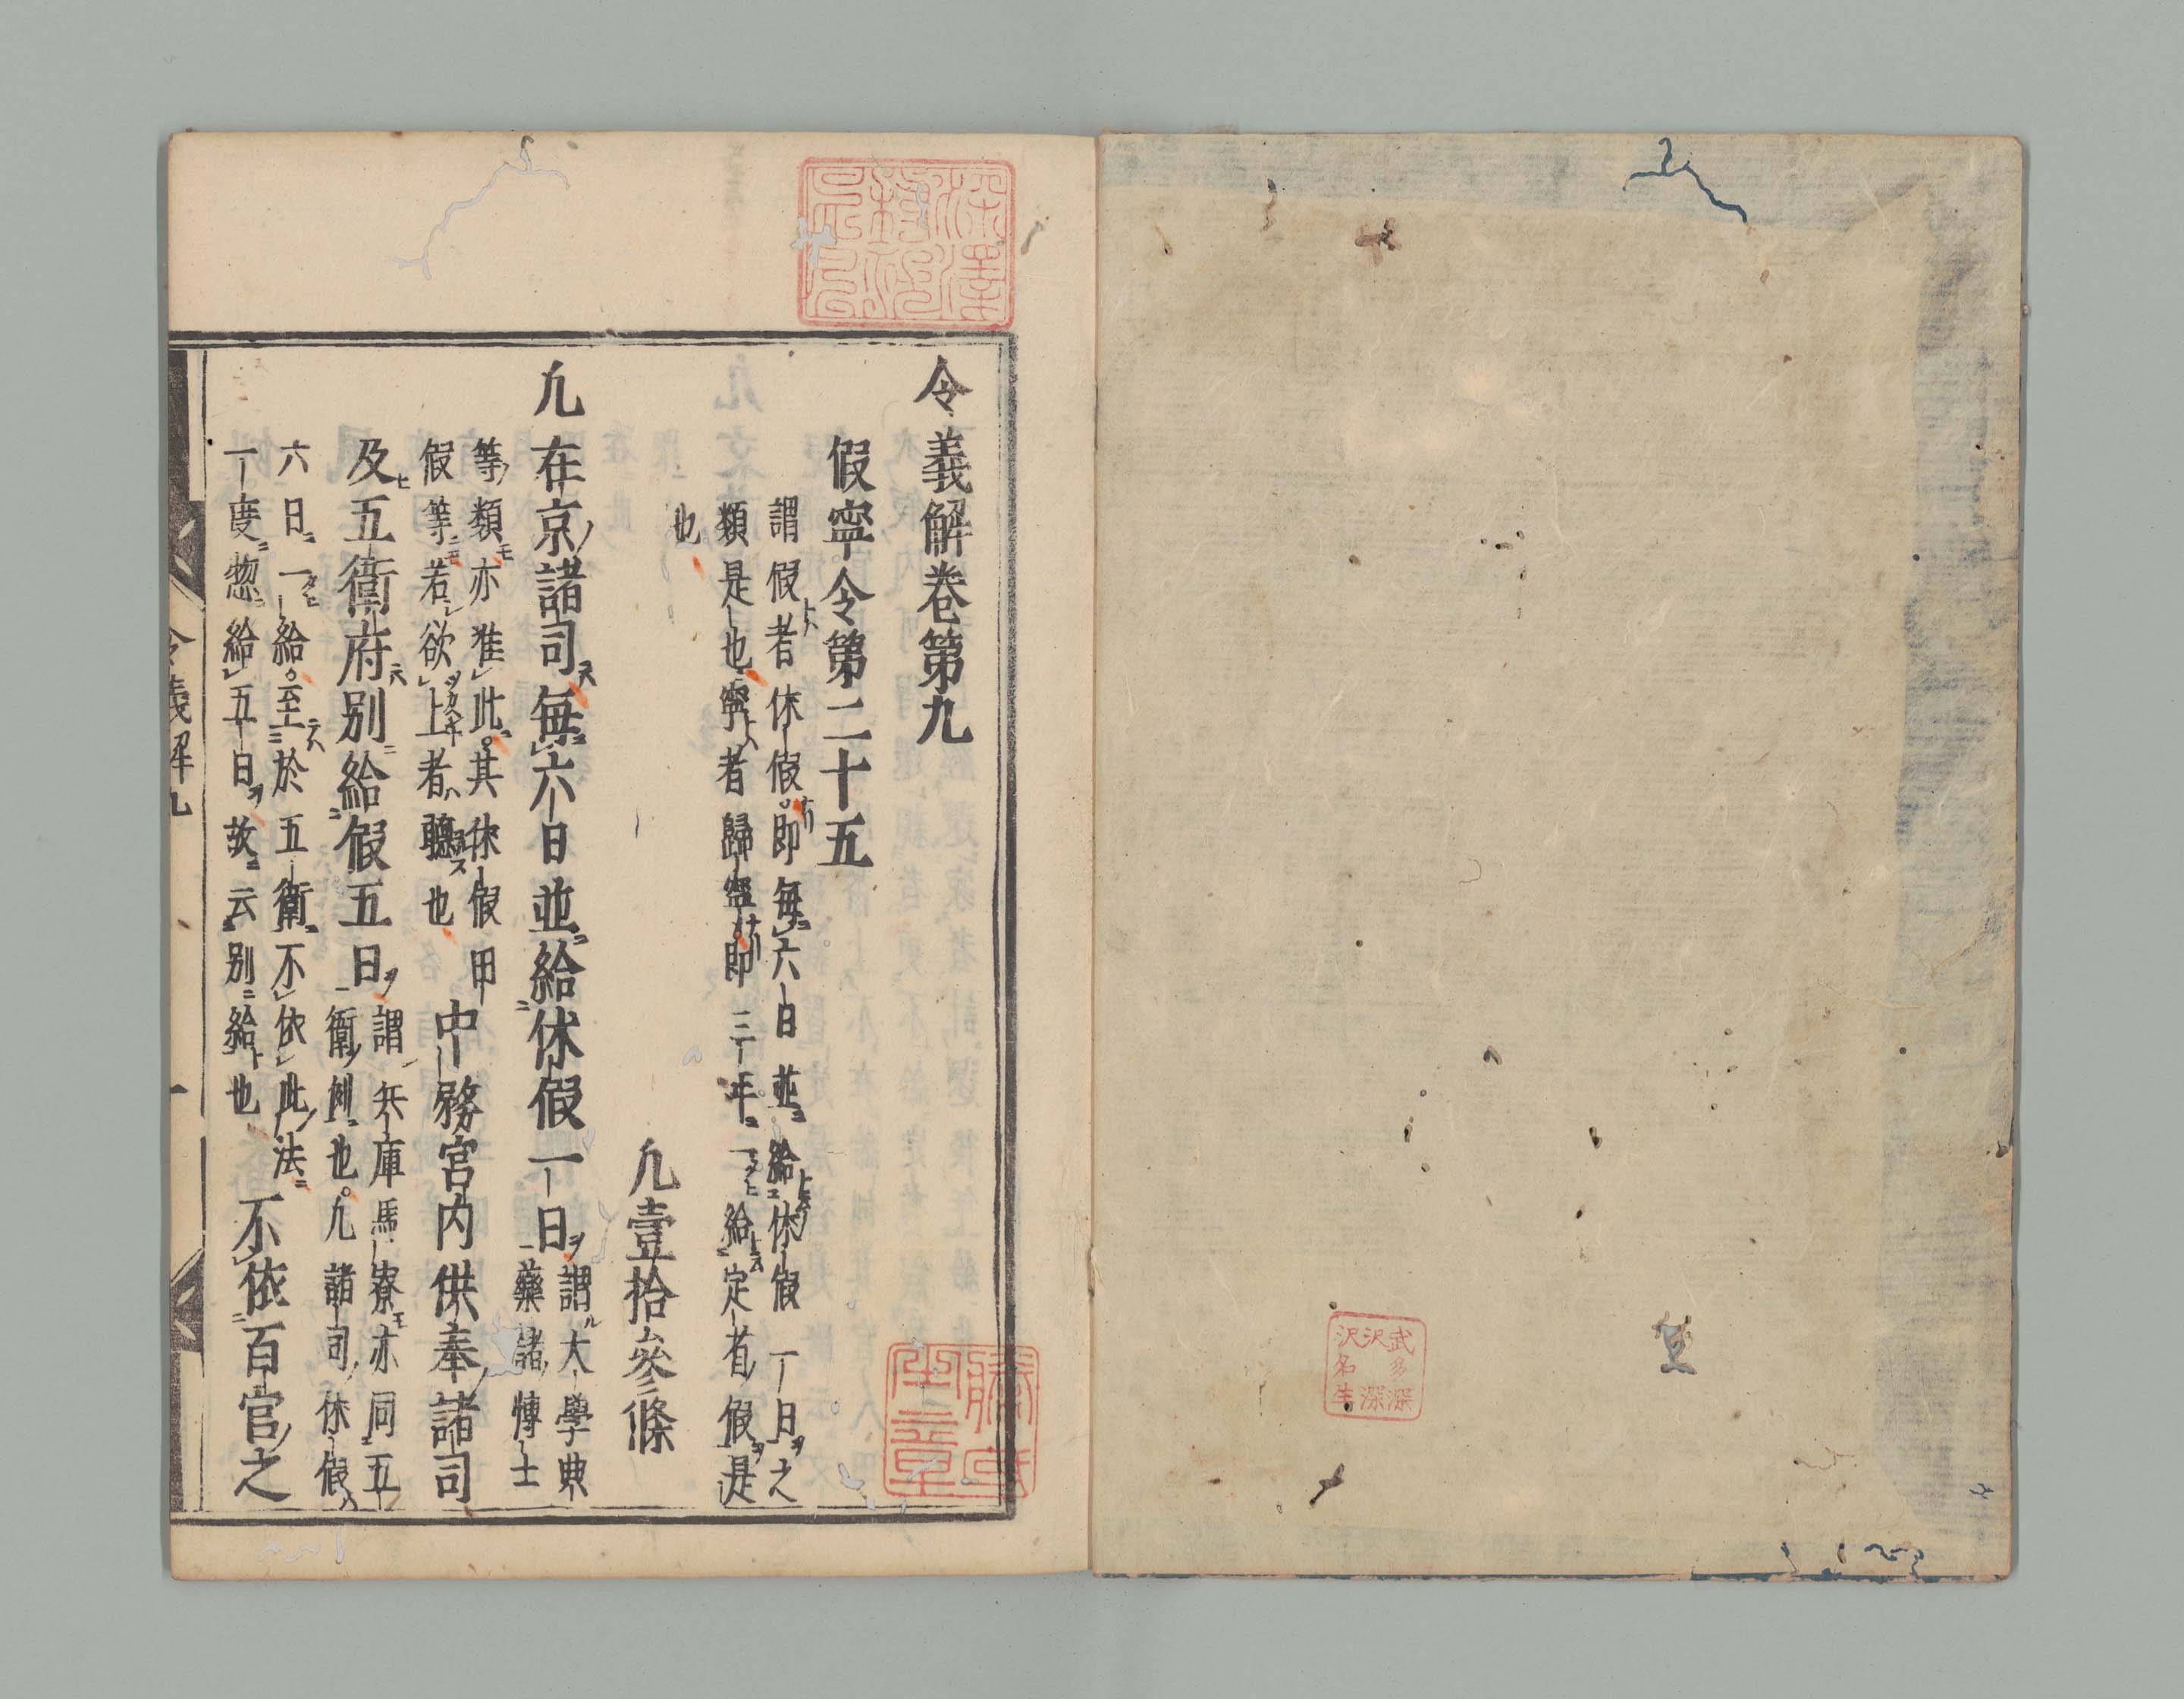 令義解卷第九
假寧令第二十五
謂假者休假即每六日並給休假一日之
類是也寧者歸寧即三年一給定省假是
也
凢壹拾參條
凢在京諸司每六日並給休假一日謂大學典
藥諸博士
等類亦准此其休假田
假等若欲上者聽也中務宮内供奉諸司
及五衛府別給假五日謂兵庫馬寮亦同五
衛例也凢諸司休假
六日一給至於五衛不依此法
一度惣給五日故云別給也不依百官之
令義解九
一
武多深
沢深
沢名生